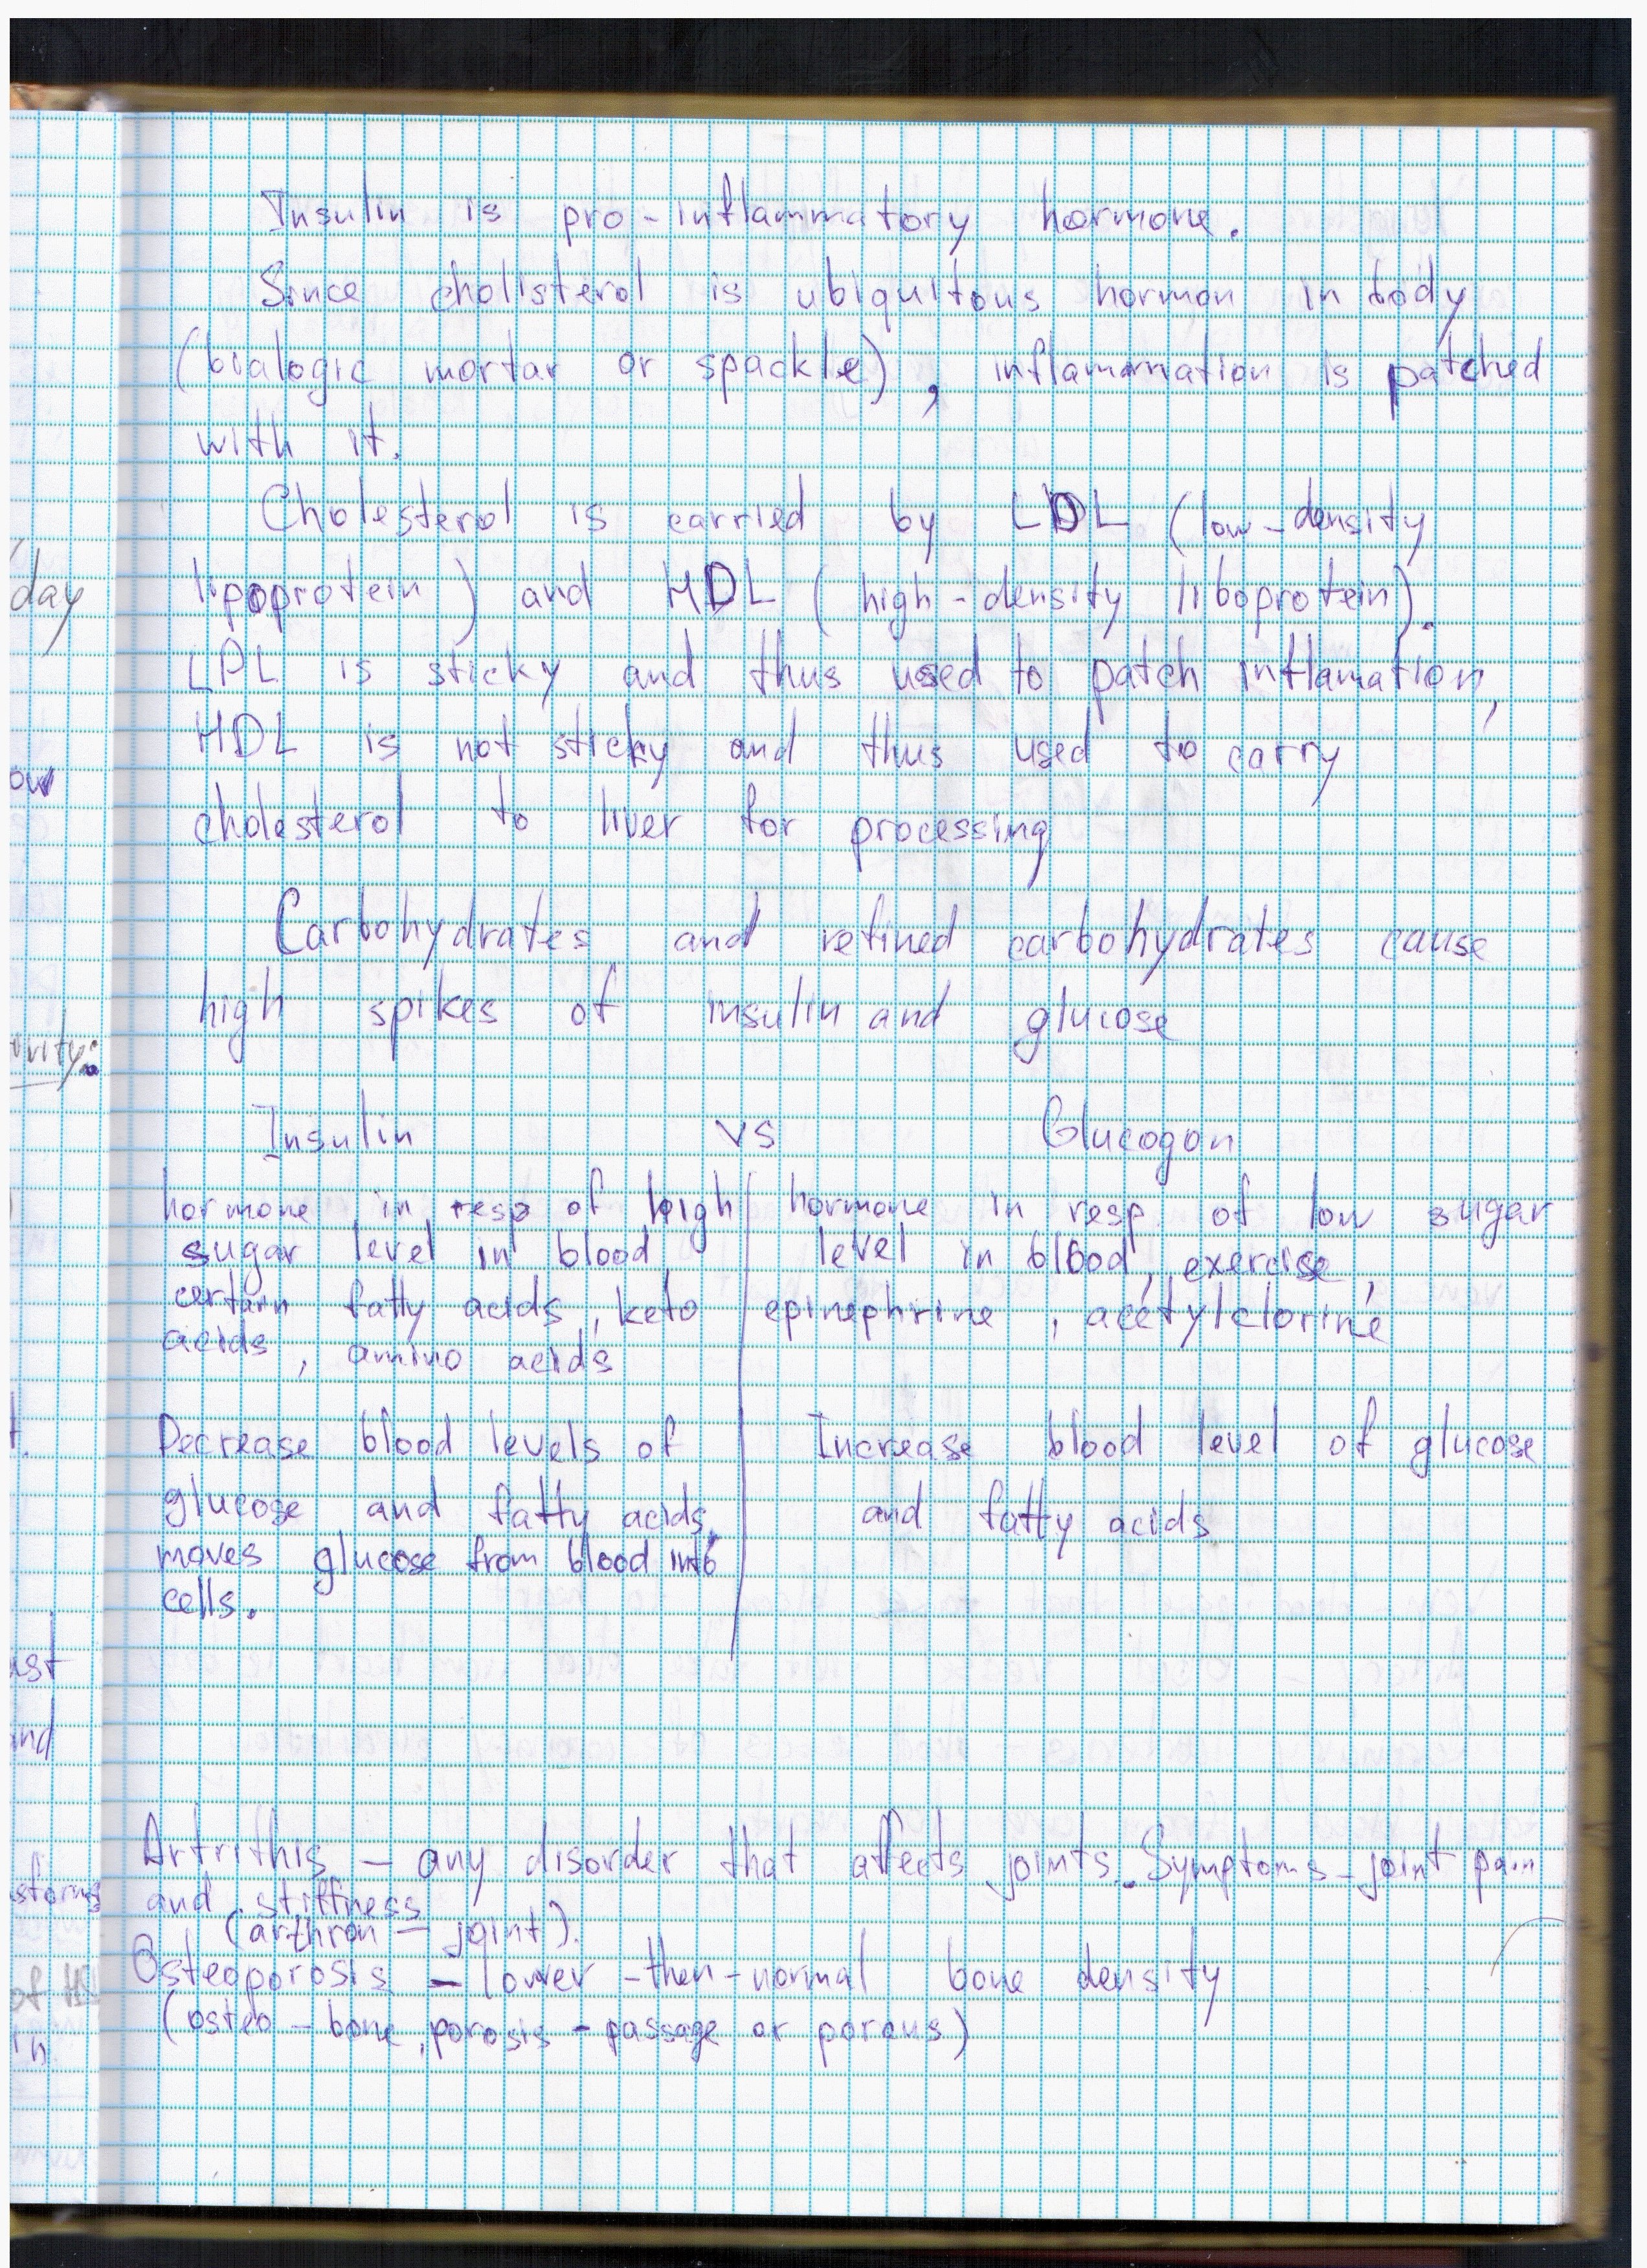 Insulin is pro-inflammatory hormone.
Since cholisterol is ubiquitous hormon in body
(bialogic mortar or spackle), inflammation is patched
with it.
Cholesterol is carried by LDL (low-density
lipoprotein) and HDL (high-density liboprotein).
LPL is sticky and thus used to patch inflamation,
HDL is not sticky and thus used to carry
cholesterol to liver for processing
Carbohydrates and refined carbohydrates cause
high spikes of insulin and glucose
Insulin vs Glucogon
hormone in resp of high
sugar level in blood,
certain fatty acids, keto
acids, amino acids
Decrease blood levels of
glucose and fatty acids,
moves glucose from blood into
cells.
hormone in resp. of low sugar
level in blood, exercise,
epinephrine, acetylclorine
Increase blood level of glucose
and fatty acids
Artrithis – any disorder that affects joints. Symptoms – joint pain
and stiffness
(arthron – joint).
Osteoporosis – lower-then-normal bone density
(osteo – bone, porosis – passage or porous)
day